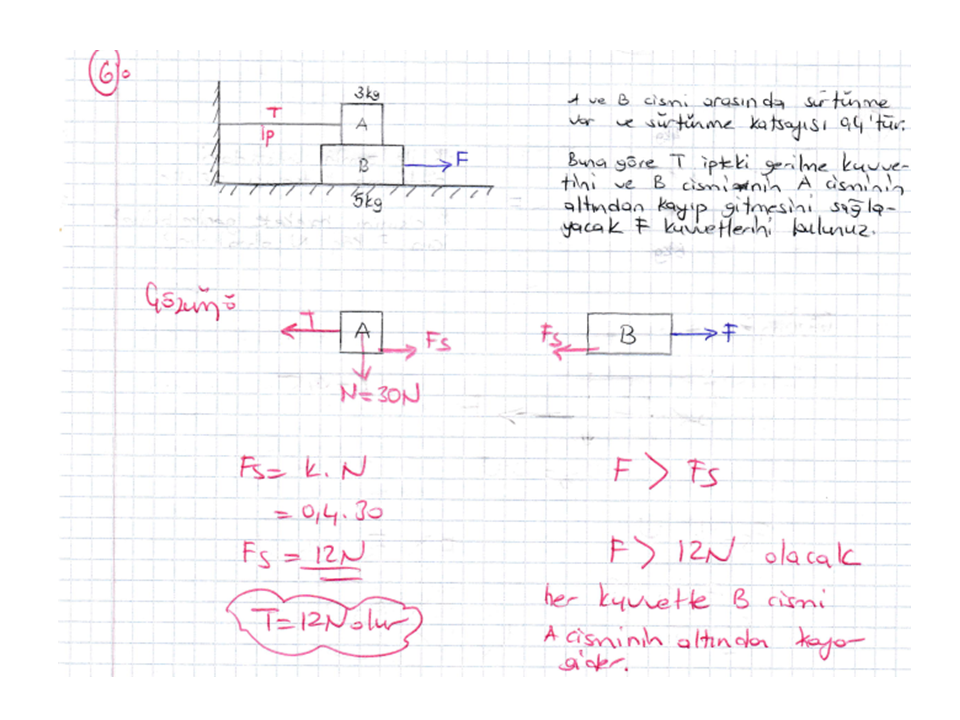 6.
3kg
T
A
ip
B
F
5kg
A ve B cismi arasında sürtünme
var ve sürtünme katsayısı 0,4'tür.
Buna göre T ipteki gerilme kuvve-
tini ve B cisminin A cisminin
altından kayıp gitmesini sağla-
yacak F kuvvetlerini bulunuz.
Çözüm 6
T
A
Fs
N=30N
Fs
B
F
Fs= k.N
= 0,4.30
Fs = 12N
T=12N olur
F > Fs
F > 12N olacak
her kuvvetle B cismi
A cisminin altından kaya-
gider.